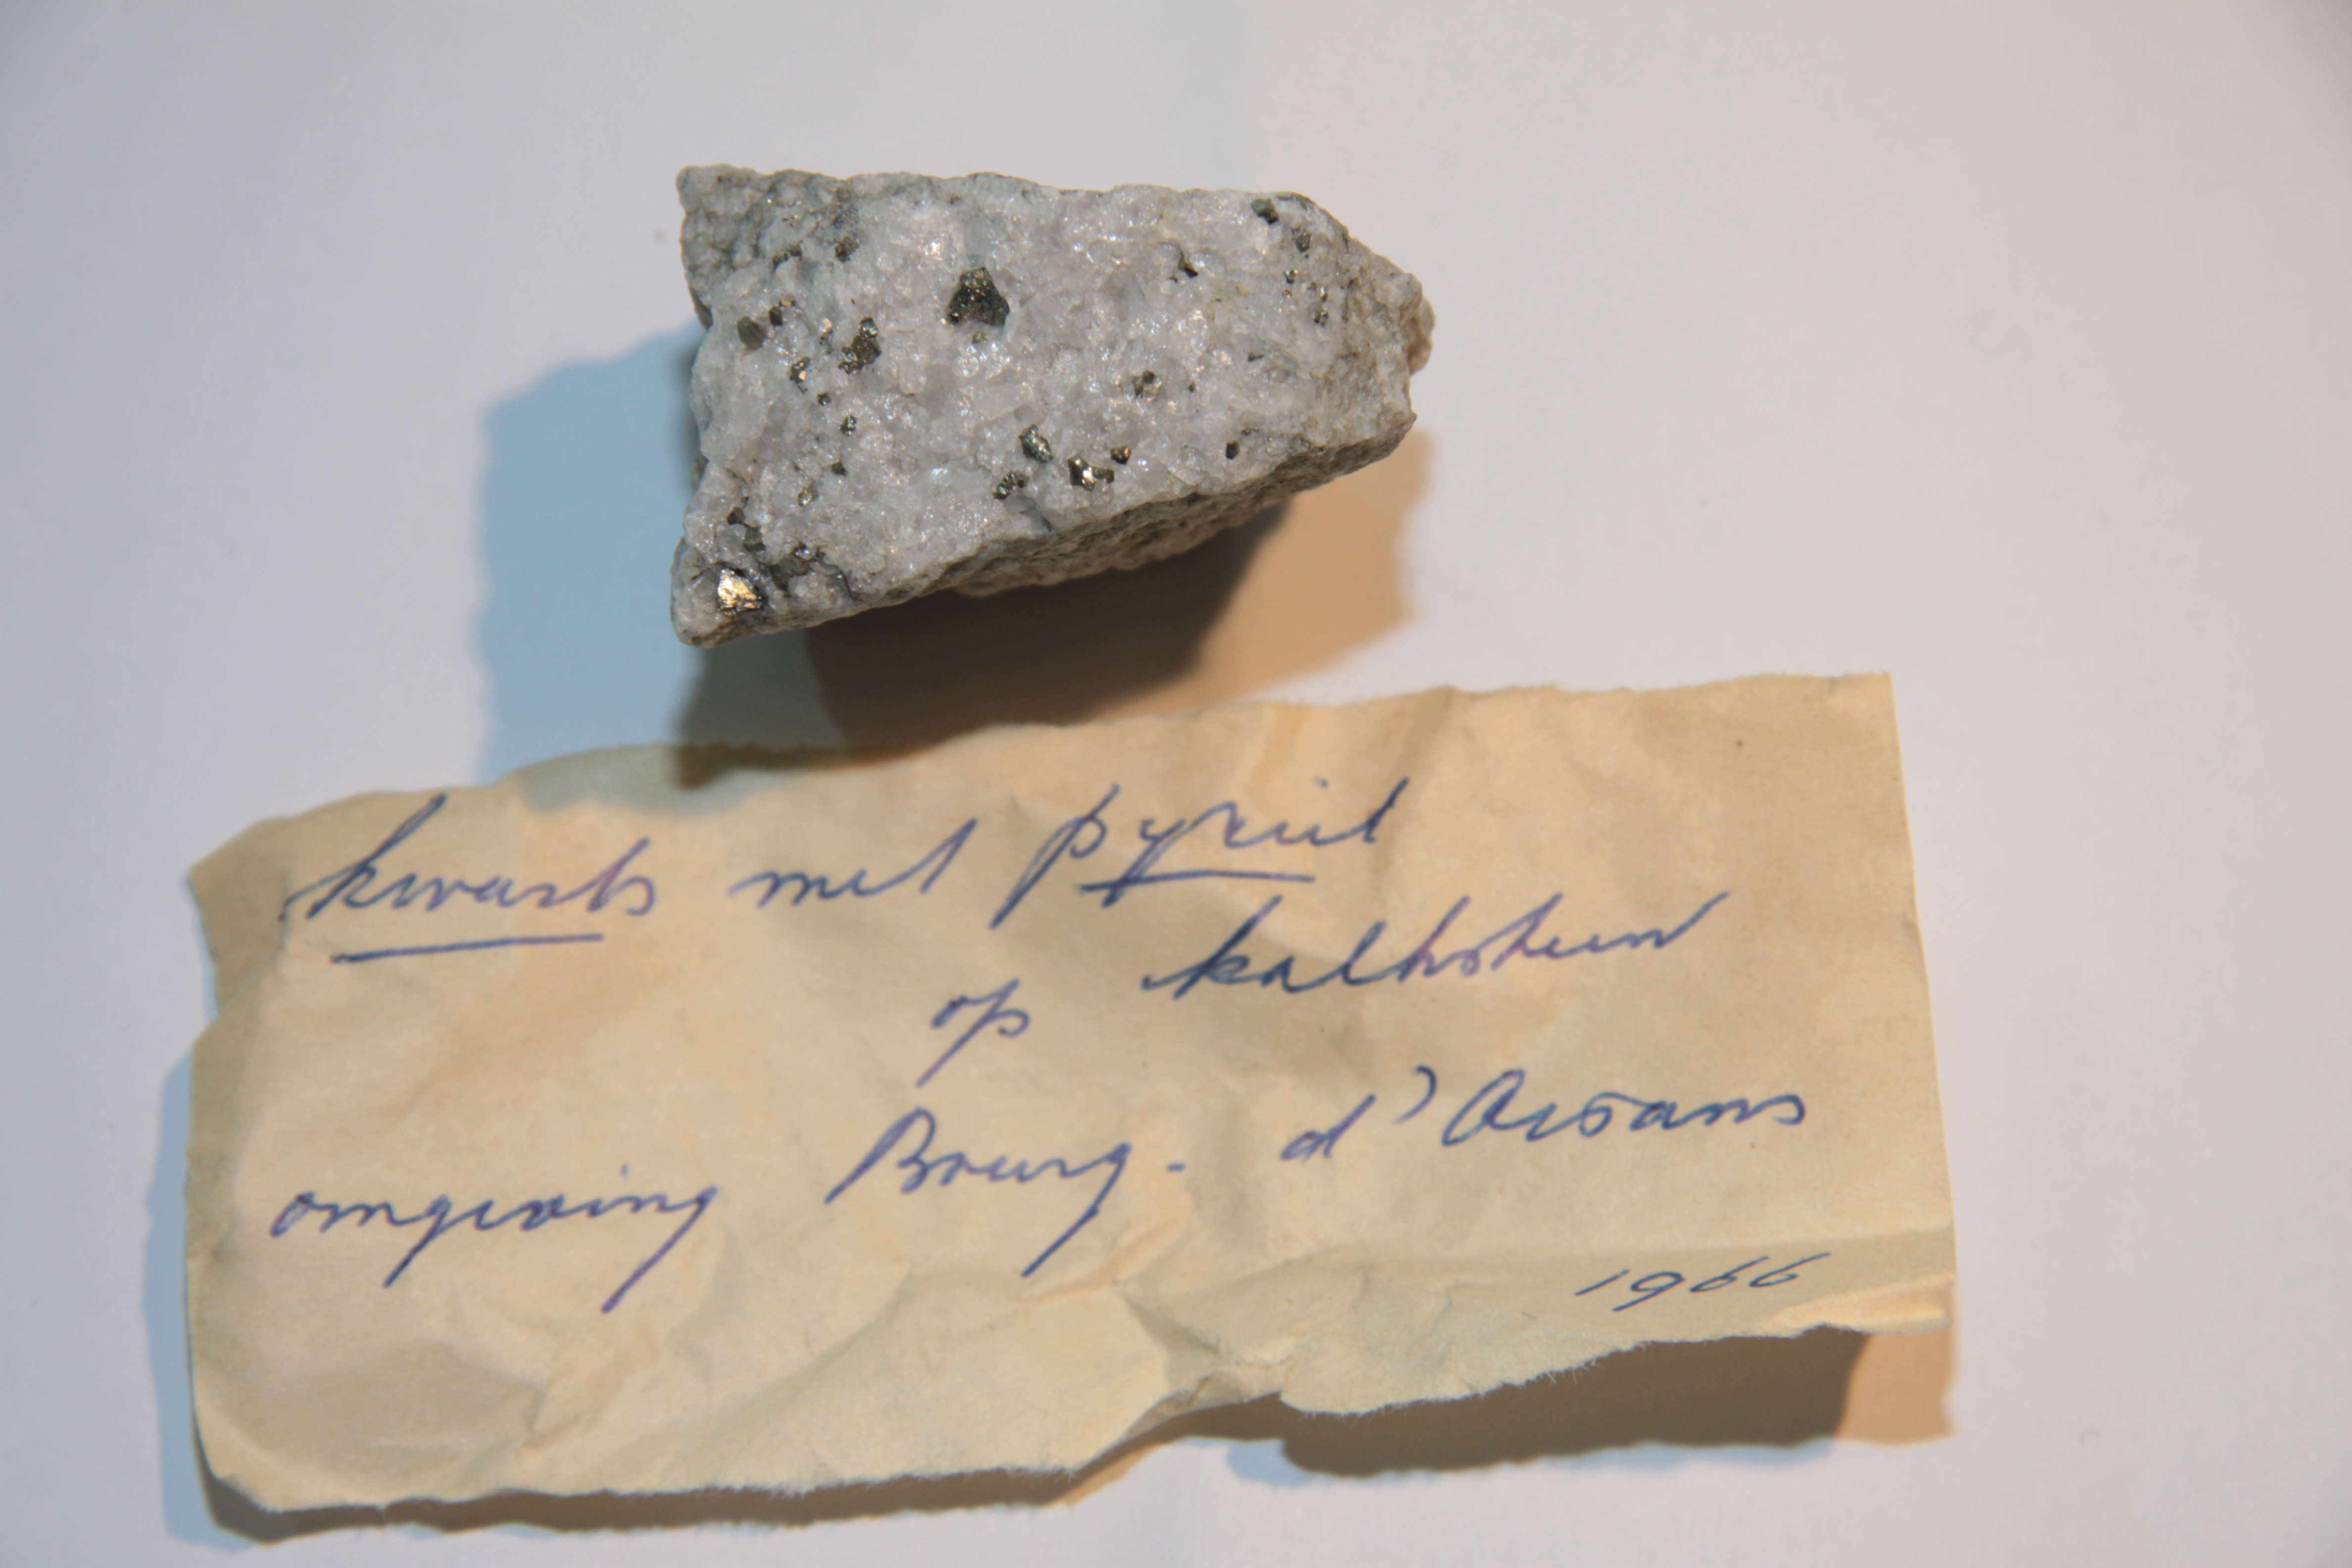 kwarts met pyriet
op kalksteen
omgeving Bourg - d'Oisans
1966